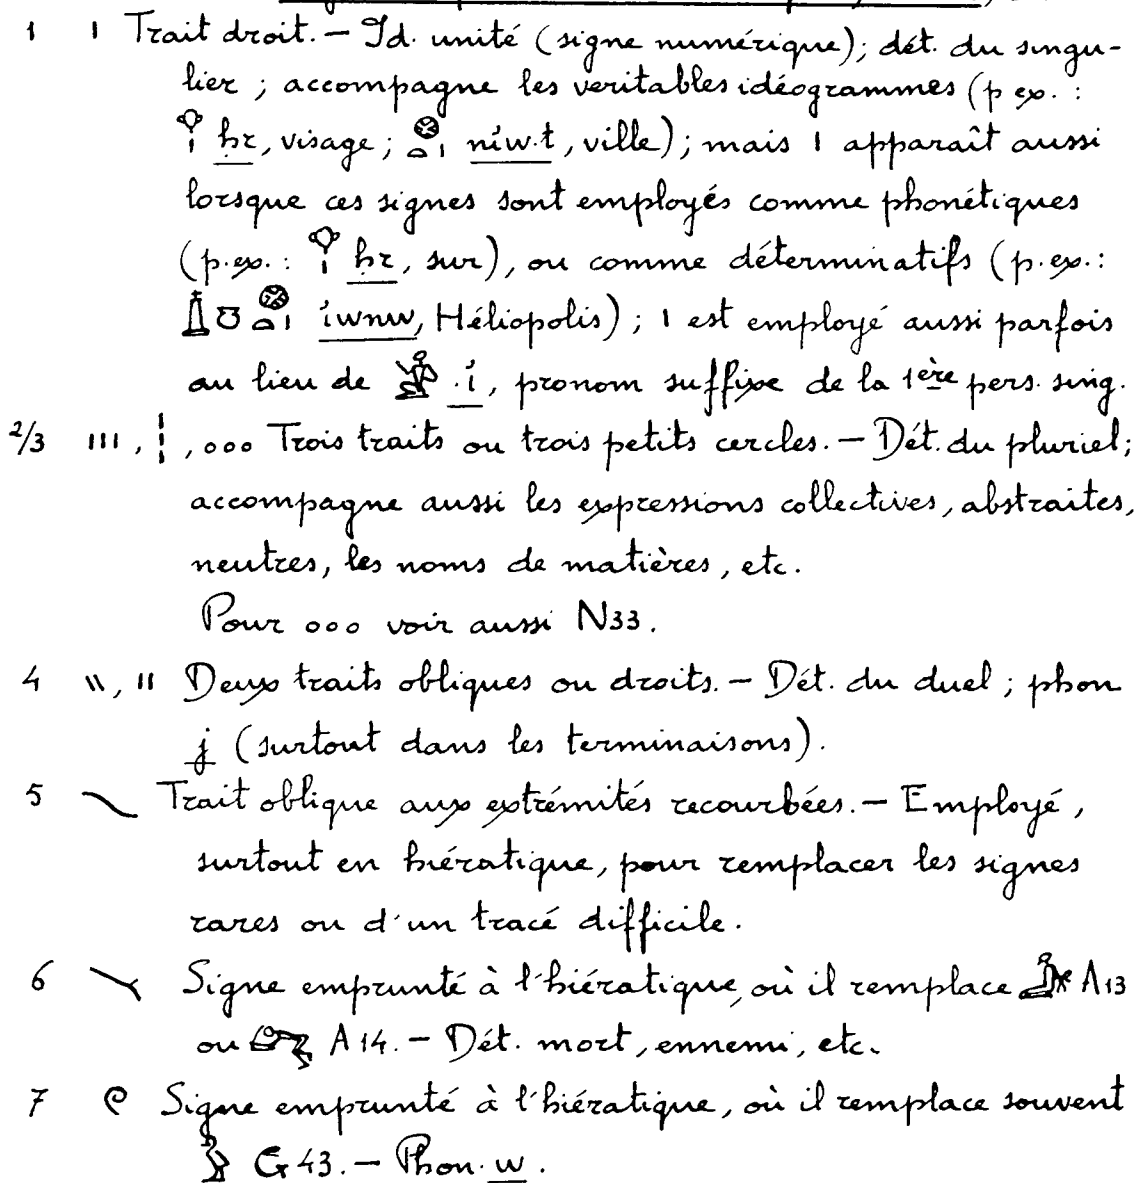 1 𓏤 Trait droit. – Id. unité (signe numérique); dét. du singu-
lier ; accompagne les veritables idéogrammes (p ex. :
𓁷𓏤 ḥr, visage ; 𓊖𓏏𓏤 níw.t, ville); mais 𓏤 apparaît aussi
lorsque ces signes sont employés comme phonétiques
(p.ex. : 𓁷𓏤 ḥr, sur), ou comme déterminatifs (p.ex.:
𓉺𓏌𓊖𓏏𓏤 íwnw, Héliopolis) ; 𓏤 est employé aussi parfois
au lieu de 𓀀 .í, pronom suffixe de la 1ère pers. sing.
2/3 𓏥, 𓏪, ooo Trois traits ou trois petits cercles. – Dét. du pluriel;
accompagne aussi les expressions collectives, abstraites,
neutres, les noms de matières, etc.
Pour ooo voir aussi N33.
4 𓏭, 𓏮 Deux traits obliques ou droits. – Dét. du duel ; phon
j (surtout dans les terminaisons).
5 𓏯 Trait oblique aux extrémités recourbées. – Employé,
surtout en hiératique, pour remplacer les signes
rares ou d'un tracé difficile.
6 𓏱 Signe emprunté à l'hiératique, où il remplace 𓀏 A13
ou 𓀐 A14. – Dét. mort, ennemi, etc.
7 𓏲 Signe emprunté à l'hiératique, où il remplace souvent
𓅱 G43. – Phon. w.